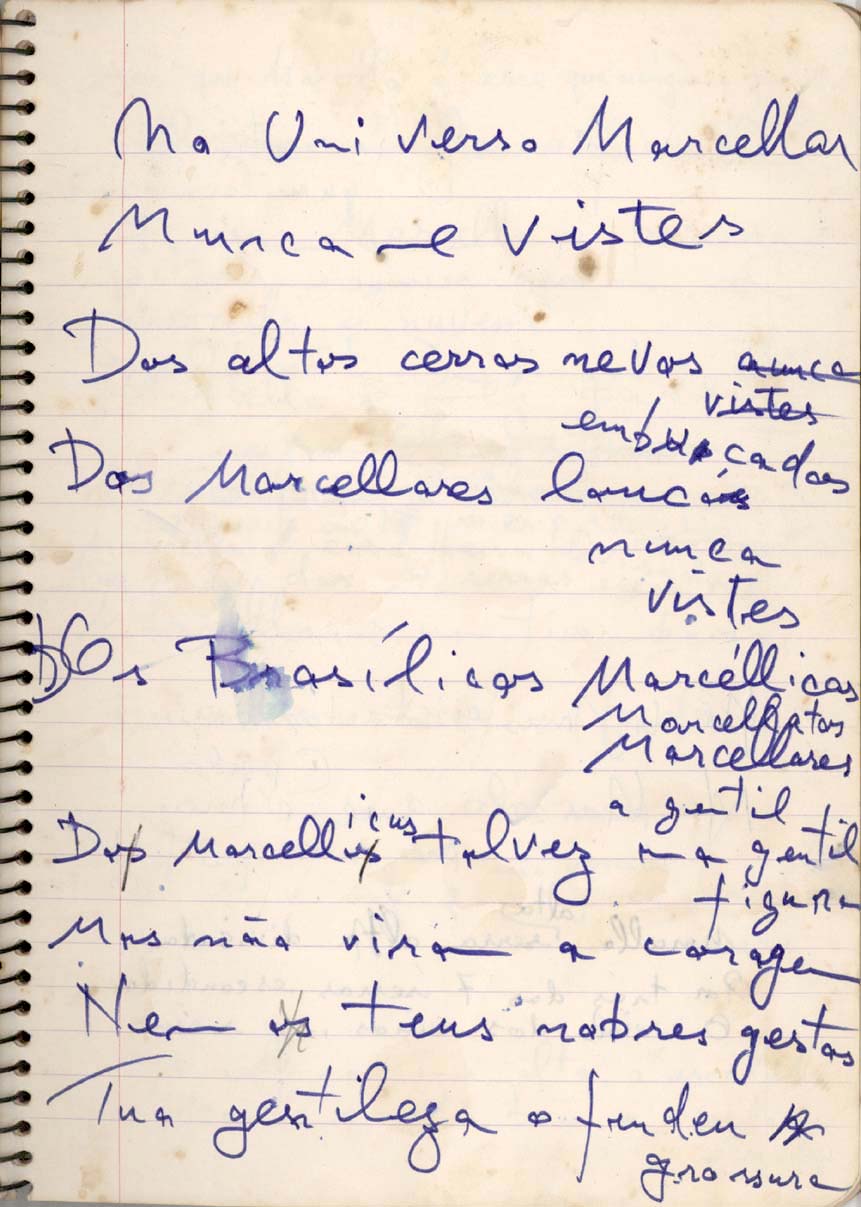 No Universo Marcellar
Nunca me vistes
Dos altos cerros nevos nunca
vistes
embuçados
Dos Marcellares
nunca
vistes
Os Brasílicos Marcéllicos
Marcellatos
Marcellares
a gentil
Dos Marcellicus talvez na gentil
figura
Mas não viram a coragem
Nem os teus nobres gestos
Tua gentileza ofender
grossura